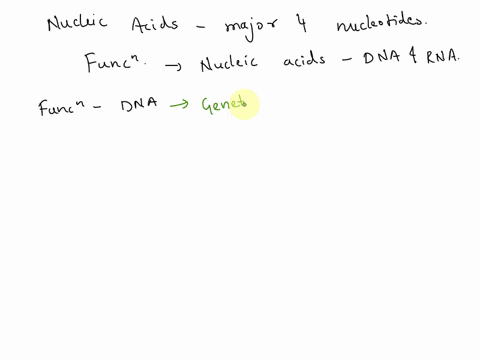 Nucleic Acids - major 4 nucleotides.
Funcⁿ. → Nucleic acids - DNA & RNA.
Funcⁿ - DNA → Genet